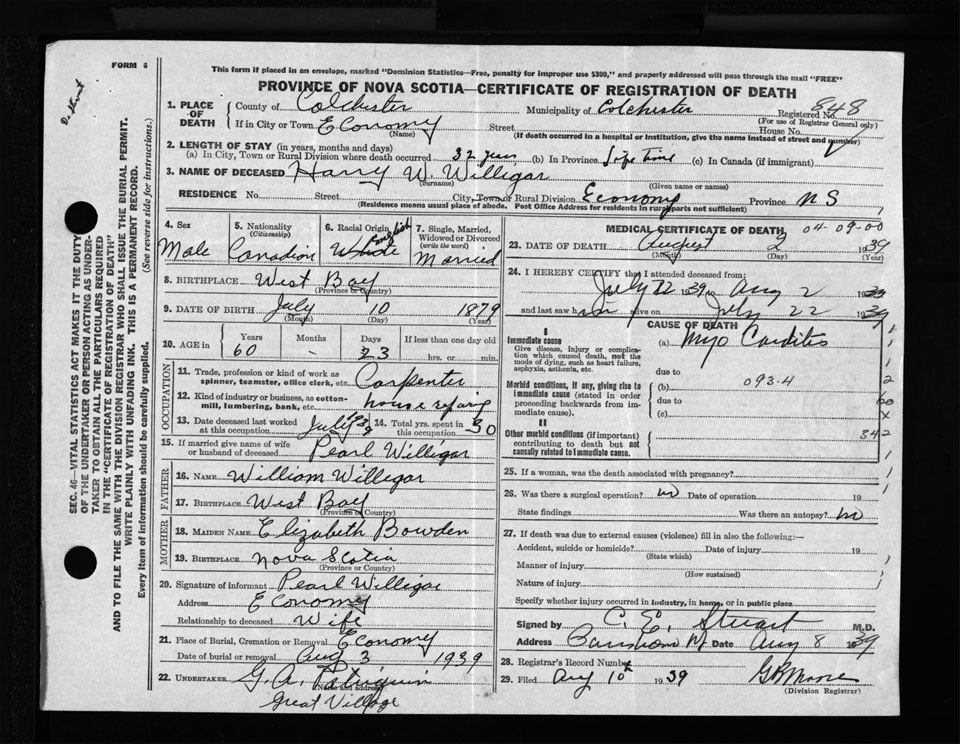 FORM 6
This form if placed in an envelope, marked "Dominion Statistics—Free, penalty for improper use $300," and properly addressed will pass through the mail "FREE"
PROVINCE OF NOVA SCOTIA—CERTIFICATE OF REGISTRATION OF DEATH
D. Stuart
SEC. 46—VITAL STATISTICS ACT MAKES IT THE DUTY
OF THE UNDERTAKER OR PERSON ACTING AS UNDER-
TAKER TO OBTAIN ALL THE PARTICULARS REQUIRED
IN THE "CERTIFICATE OF REGISTRATION OF DEATH"
AND TO FILE THE SAME WITH THE DIVISION REGISTRAR WHO SHALL ISSUE THE BURIAL PERMIT.
WRITE PLAINLY WITH UNFADING INK. THIS IS A PERMANENT RECORD.
Every item of information should be carefully supplied. (See reverse side for instructions.)
1. PLACE OF DEATH County of Colchester Municipality of Colchester Registered No. 848
(For use of Registrar General only)
If in City or Town Economy Street House No.
(Name) (If death occurred in a hospital or institution, give the name instead of street and number)
2. LENGTH OF STAY (in years, months and days)
(a) In City, Town or Rural Division where death occurred 32 years (b) In Province Life time (c) In Canada (if immigrant)
3. NAME OF DECEASED Harry W. Willigar
(Surname) (Given name or names)
RESIDENCE No. Street City, Town or Rural Division Economy Province N S
(Residence means usual place of abode. Post Office Address for residents in rural parts not sufficient)
4. Sex Male
5. Nationality (Citizenship) Canadian
6. Racial Origin English White
7. Single, Married, Widowed or Divorced (write the word) Married
8. BIRTHPLACE West Bay
(Province or Country)
9. DATE OF BIRTH July 10 1879
(Month) (Day) (Year)
10. AGE in Years Months Days If less than one day old
60 - 23 hrs. or min.
OCCUPATION
11. Trade, profession or kind of work as spinner, teamster, office clerk, etc. Carpenter
12. Kind of industry or business, as cotton-mill, lumbering, bank, etc.
13. Date deceased last worked at this occupation
14. Total yrs. spent in this occupation 30
15. If married give name of wife or husband of deceased Pearl Willigar
FATHER
16. NAME William Willigar
17. BIRTHPLACE West Bay
(Province or Country)
MOTHER
18. MAIDEN NAME Elizabeth Bowden
19. BIRTHPLACE Nova Scotia
(Province or Country)
20. Signature of informant Pearl Willigar
Address Economy
Relationship to deceased Wife
21. Place of Burial, Cremation or Removal Economy
Date of burial or removal Aug 3 1939
22. UNDERTAKER G. A. Patriquin
(Name and address)
Great Village
MEDICAL CERTIFICATE OF DEATH 04-09-00
23. DATE OF DEATH August 2 1939
(Month) (Day) (Year)
24. I HEREBY CERTIFY that I attended deceased from:
July 22 1939 to Aug 2 1939
and last saw him alive on July 22 1939
CAUSE OF DEATH
I
Immediate cause
Give disease, injury or complication which caused death, not the mode of dying, such as heart failure, asphyxia, asthenia, etc.
(a) Myo Carditis
due to
Morbid conditions, if any, giving rise to immediate cause (stated in order proceeding backwards from immediate cause).
(b) 093-4
due to
(c)
II
Other morbid conditions (if important) contributing to death but not causally related to immediate cause.
342
25. If a woman, was the death associated with pregnancy?
26. Was there a surgical operation? no Date of operation 19
State findings Was there an autopsy? no
27. If death was due to external causes (violence) fill in also the following:—
Accident, suicide or homicide? Date of injury 19
(State which)
Manner of injury
(How sustained)
Nature of injury
Specify whether injury occurred in industry, in home, or in public place
Signed by C. E. Stuart M.D.
Address Date Aug 8 1939
28. Registrar's Record Number
29. Filed Aug 10th 1939 Moore
(Division Registrar)